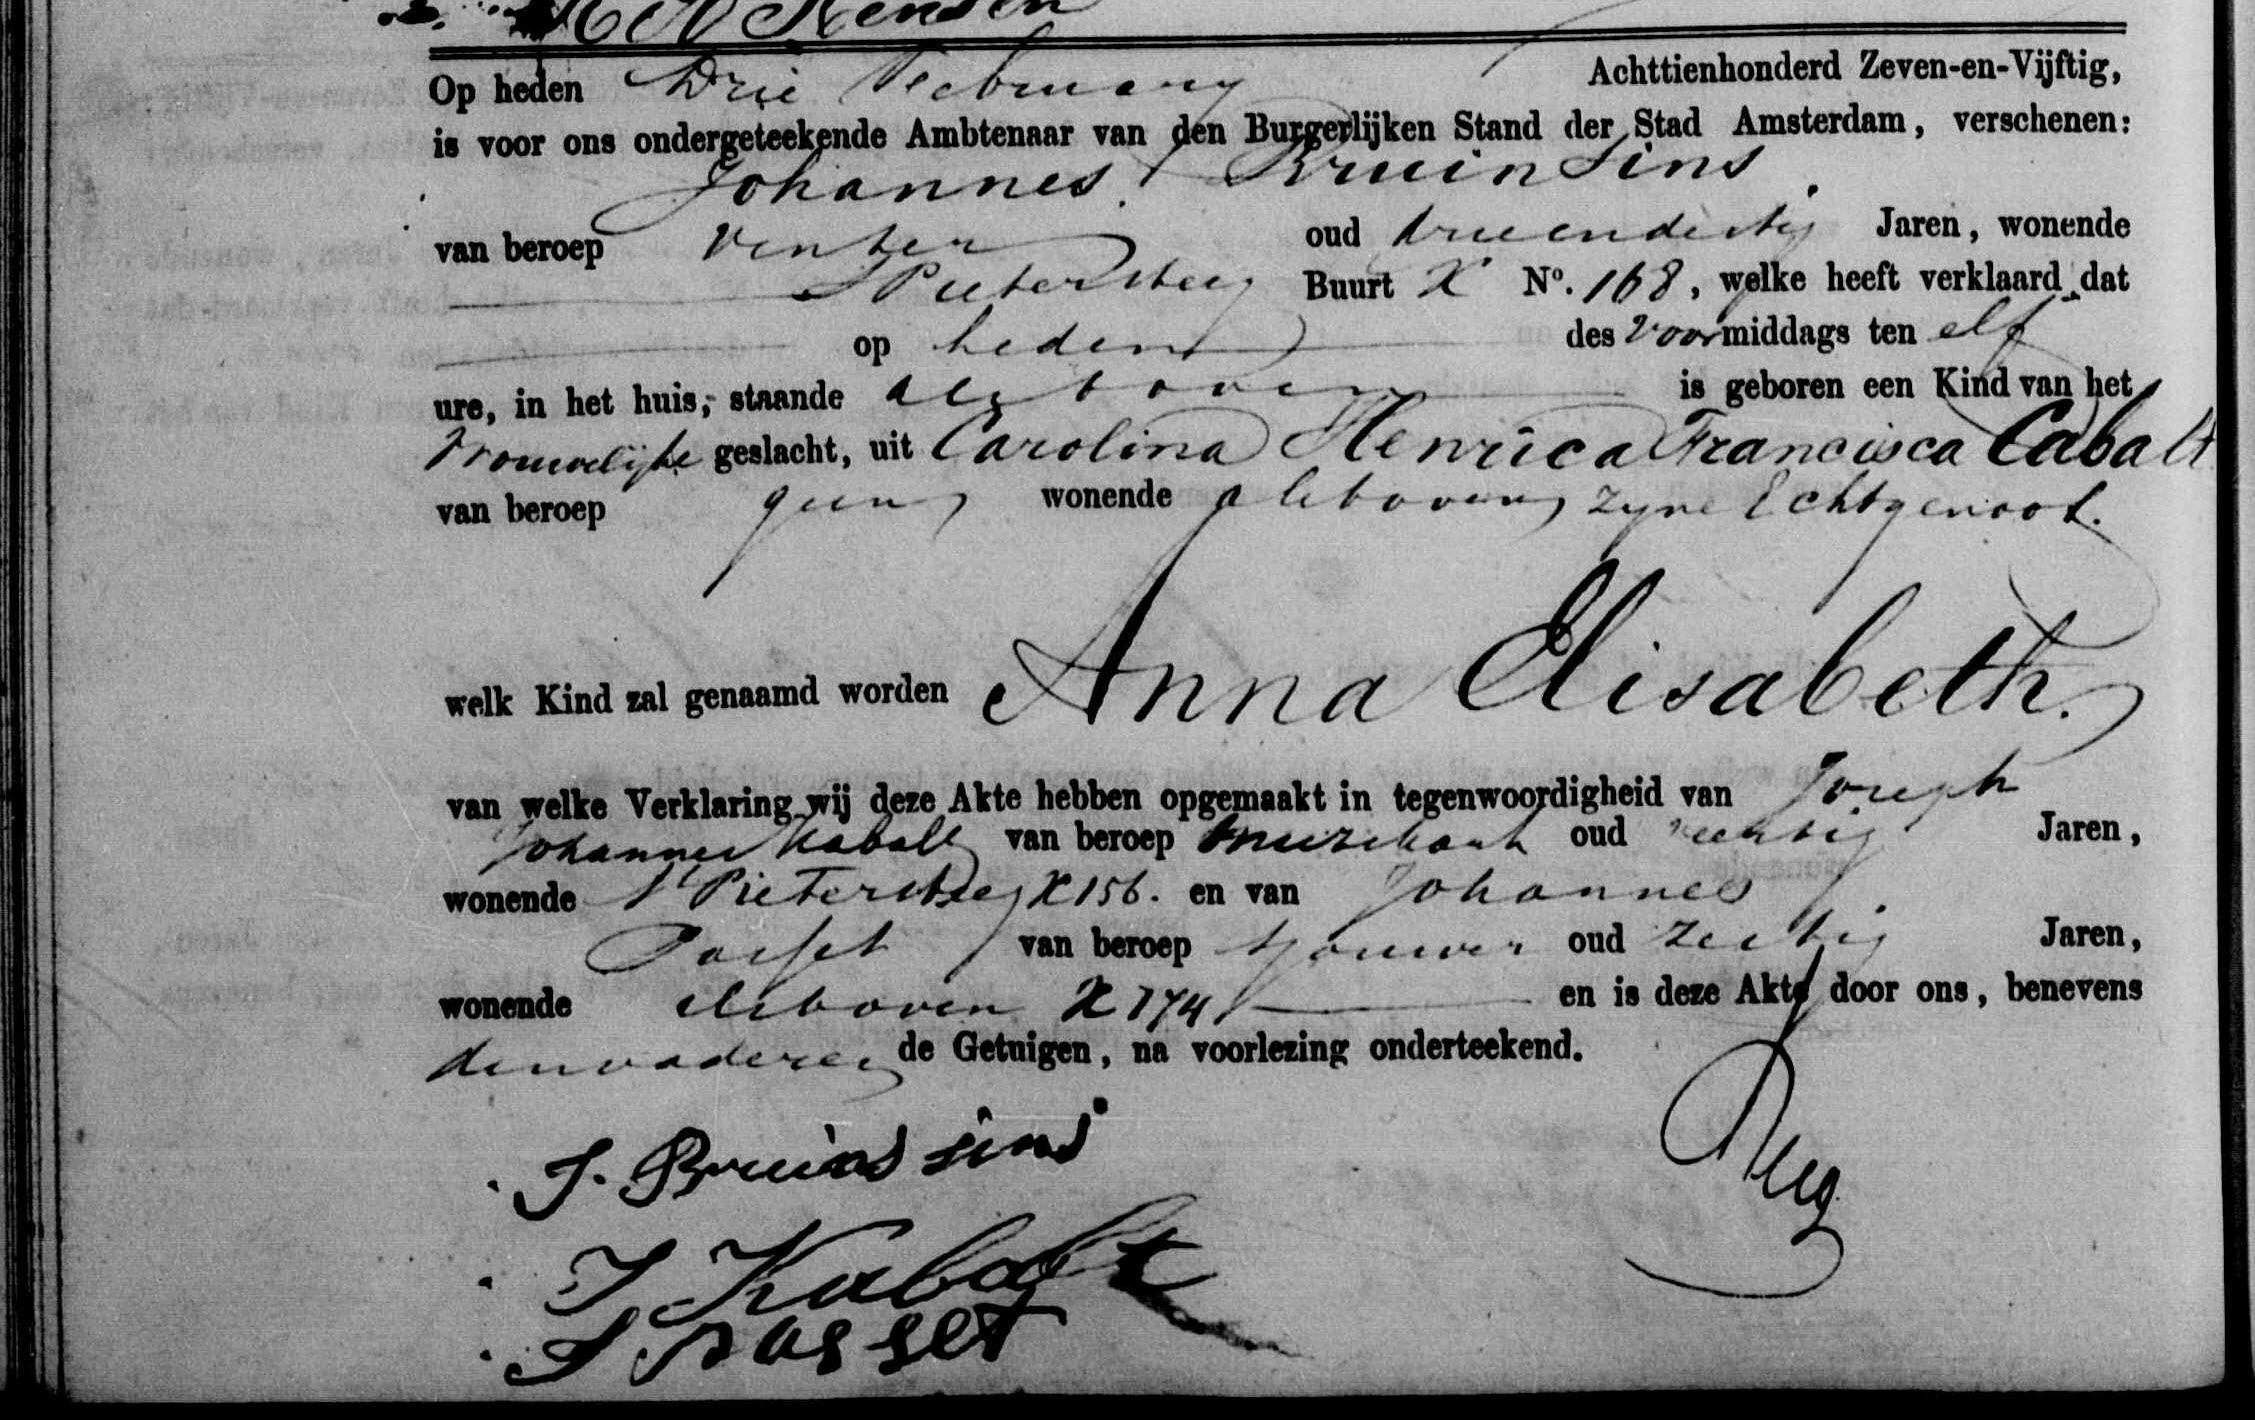 Op heden Drie February Achttienhonderd Zeven-en-Vijftig,
is voor ons ondergeteekende Ambtenaar van den Burgerlijken Stand der Stad Amsterdam, verschenen:
Johannes Bruin Sins
van beroep Venter oud drieendertig Jaren, wonende
St Pietersteeg Buurt X No. 168, welke heeft verklaard dat
op heden des Voormiddags ten elf
ure, in het huis, staande als boven is geboren een Kind van het
Vrouwelijke geslacht, uit Carolina Henrica Francisca Cabalt
van beroep geen wonende als boven zyne Echtgenoot.
welk Kind zal genaamd worden Anna Elisabeth.
van welke Verklaring wij deze Akte hebben opgemaakt in tegenwoordigheid van Joseph
Johannes Kabalt van beroep muzikant oud Jaren,
wonende St Pietersteeg X 156. en van Johannes
Passet van beroep sjouwer oud zestig Jaren,
wonende als boven X 174 en is deze Akte door ons, benevens
den vader en de Getuigen, na voorlezing onderteekend.
J. Bruins sins
J Kabalt
J passet